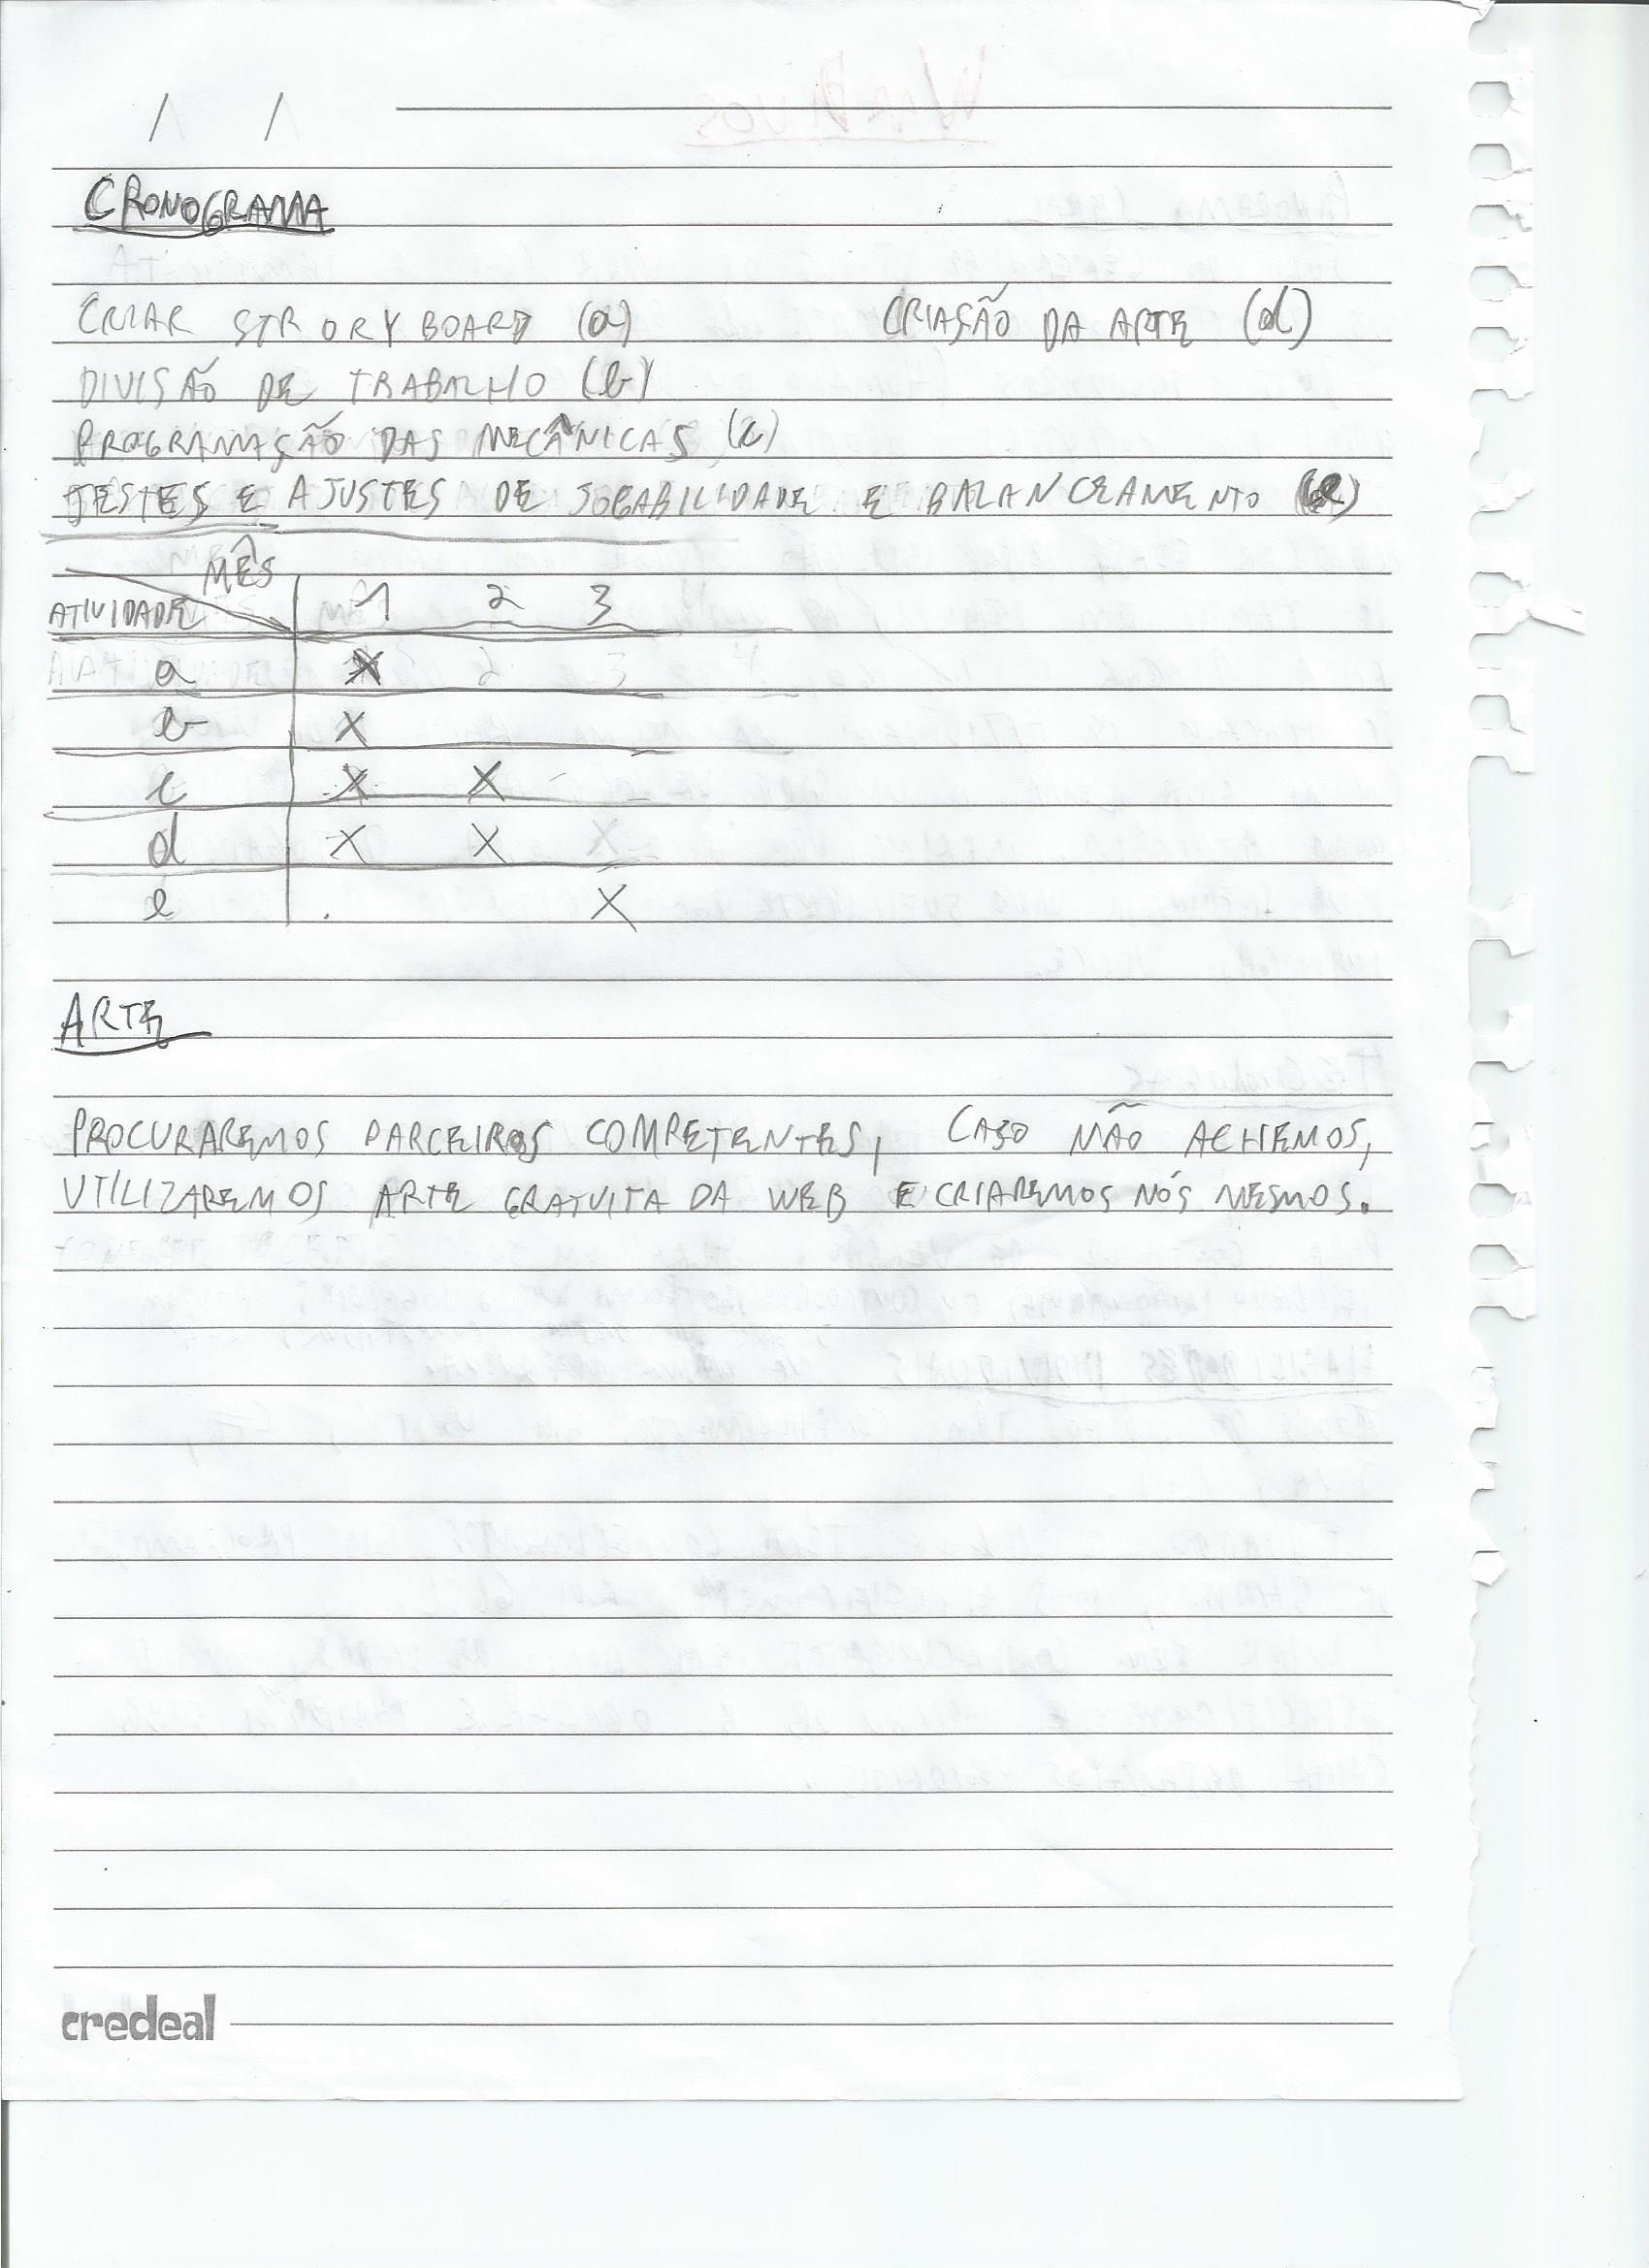 / /
CRONOGRAMA
CRIAR STRORYBOARD (a) CRIAÇÃO DA ARTE (d)
DIVISÃO DE TRABALHO (b)
PROGRAMAÇÃO DAS MECÂNICAS (c)
TESTES E AJUSTES DE JOGABILIDADE E BALANCEAMENTO (e)
MÊS
ATIVIDADE 1 2 3
a X
b X
c X X
d X X X
e X
ARTE
PROCURAREMOS PARCEIROS COMPETENTES, CASO NÃO ACHEMOS,
UTILIZAREMOS ARTE GRATUITA DA WEB E CRIAREMOS NÓS MESMOS.
credeal